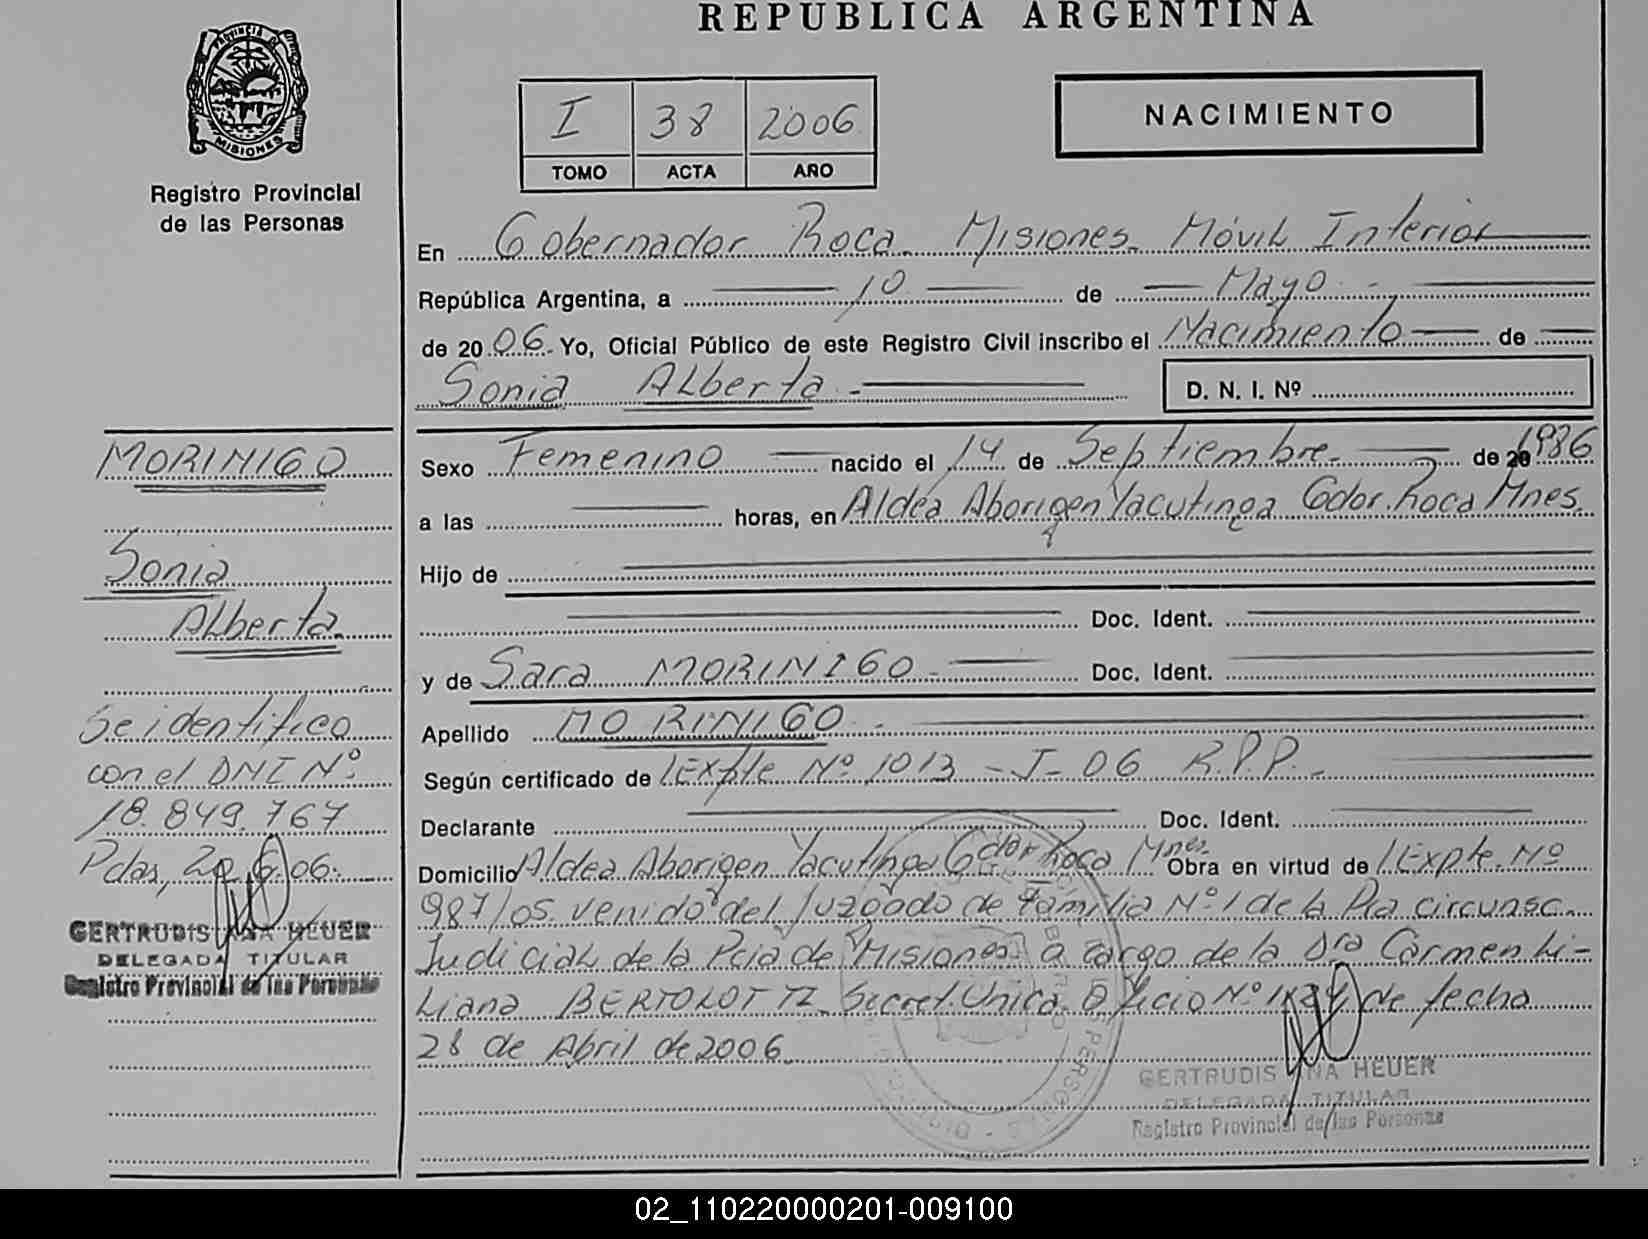 REPUBLICA ARGENTINA
PROVINCIA DE
MISIONES
Registro Provincial
de las Personas
I 38 2006
TOMO ACTA AÑO
NACIMIENTO
En Gobernador Roca Misiones Móvil Interior
República Argentina, a 10 de Mayo
de 2006. Yo, Oficial Público de este Registro Civil inscribo el Nacimiento de
Sonia Alberta.- D. N. I. Nº
Sexo Femenino nacido el 14 de Septiembre de 20 1986
a las horas, en Aldea Aborigen Yacutinga Gdor. Roca Mnes.
Hijo de
Doc. Ident.
y de Sara MORINIGO Doc. Ident.
Apellido MORINIGO.-
Según certificado de Expte Nº 1013 - J - 06 R.P.P.
Declarante Doc. Ident.
Domicilio Aldea Aborigen Yacutinga Gdor Roca Mnes Obra en virtud de Expte. Nº
987/05 venido del Juzgado de Familia Nº 1 de la Pra circunsc.
Judicial de la Pcia de Misiones a cargo de la Dra Carmen Li-
liana BERTOLOTTI Secret. Unica Oficio Nº de fecha
28 de Abril de 2006
GERTRUDIS ANA HEUER
DELEGADA TITULAR
Registro Provincial de las Personas
MORINIGO
Sonia
Alberta
Se identifico
con el DNI Nº
18.849.767
Pdas, 20.6.06.
GERTRUDIS ANA HEUER
DELEGADA TITULAR
Registro Provincial de las Personas
02_110220000201-009100